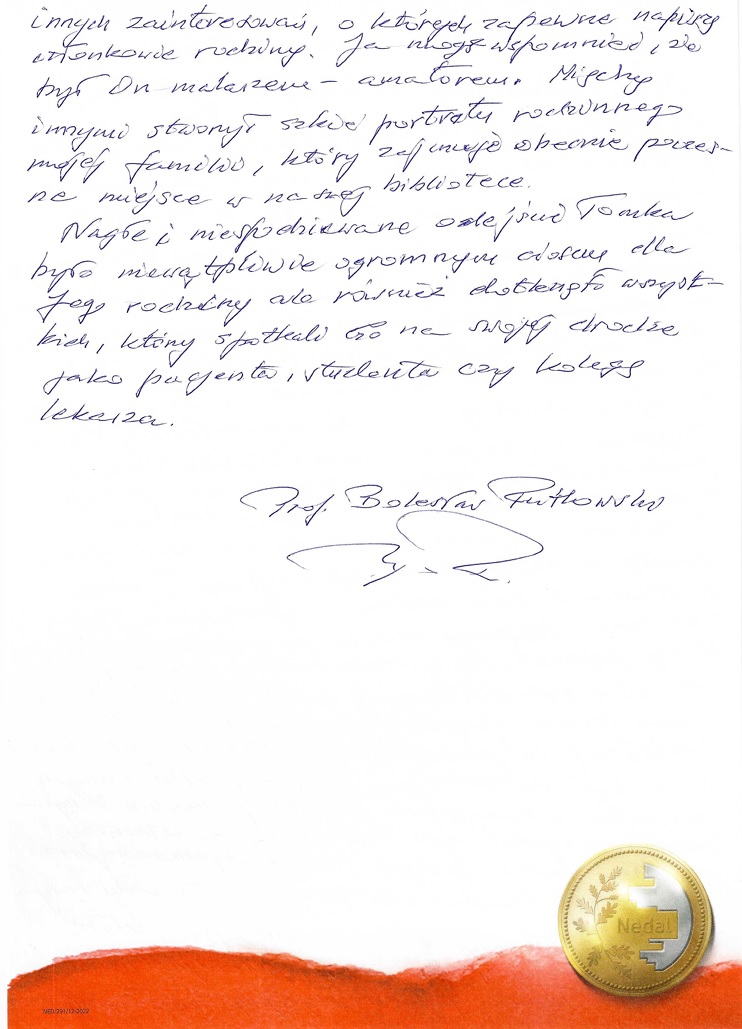 innych zainteresowań, o których zapewne napiszą
członkowie rodziny. Ja mogę wspomnieć, że
był On malarzem - amatorem. Między
innymi stworzył szkic portretu rodzinnego
mojej familii, który zajmuje obecnie poczes-
ne miejsce w naszej bibliotece.
Nagłe i niespodziewane odejście Tomka
było niewątpliwie ogromnym ciosem dla
Jego rodziny ale również dotknęło wszyst-
kich, którzy spotkali Go na swojej drodze
jako pacjenta, studenta czy kolegę
lekarza.
Prof. Bolesław Rutkowski
Nedal
NED/291/12-2022